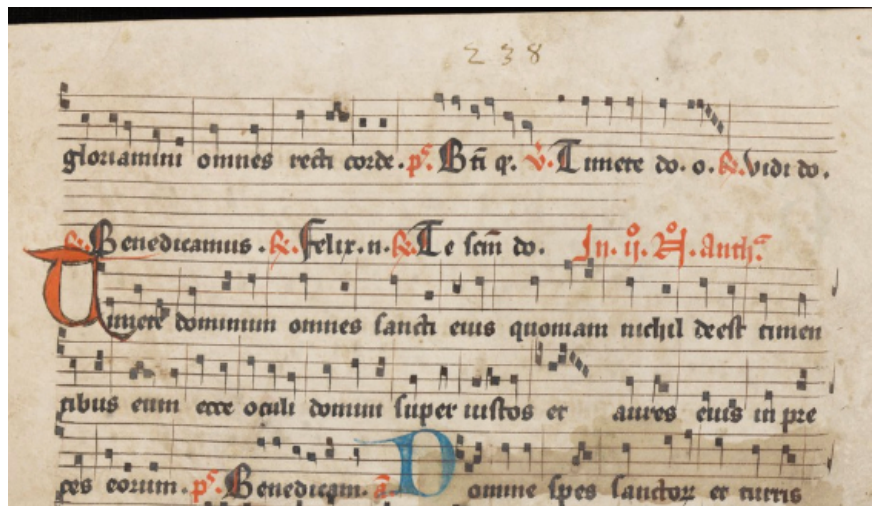 238
gloriamini omnes recti corde. ps. Bti q. v. Timete do. o. R. vidi do.
R. Benedicamus. R. Felix. n. R. Te scm do. In. ij. No. Anth.
Timete dominum omnes sancti eius quoniam nichil deest timen
tibus eum ecce oculi domini super iustos et aures eius in pre
ces eorum. ps. Benedicam. a. Domine spes sanctorꝝ et turris